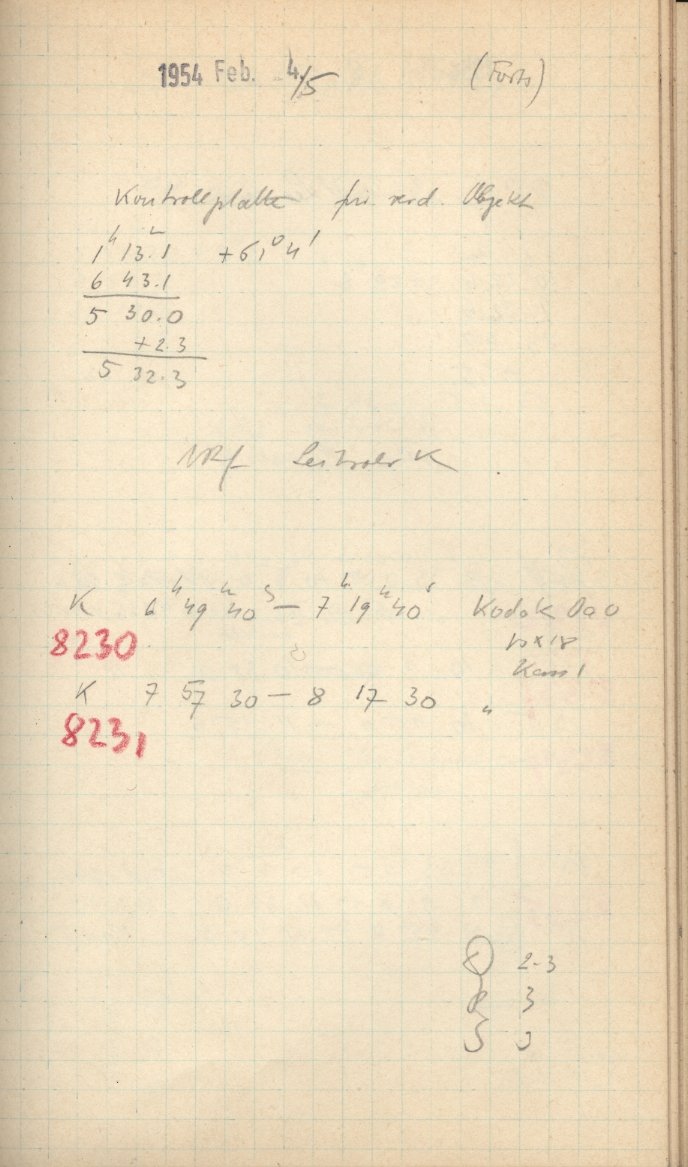 1954 Feb. 4/5 (Forts)
Kontrollplatte für verd. Objekt
1ʰ 13.1 +61° 4'
6 43.1
5 30.0
+2.3
5 32.3
K 6ʰ 49ᵐ 40ˢ — 7ʰ 19ᵐ 40ˢ Kodak OaO
8230
Kass 1
K 7 57 30 — 8 17 30 "
8231
2-3
R 3
S 0